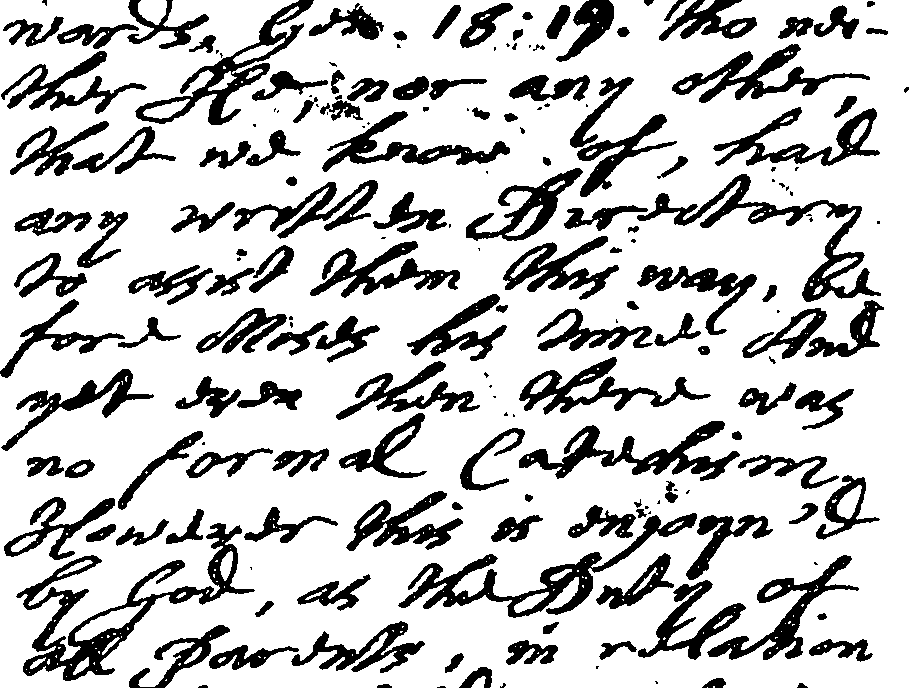 wards, Gen. 18:19. Tho nei-
ther He, nor any other,
that we know of, had
any written Directory
to assist them this way, be
fore Moses his time. And
yet even then there was
no formal Catechism.
However this is enjoyn'd
by God, as the Duty of
all Parents, in relation